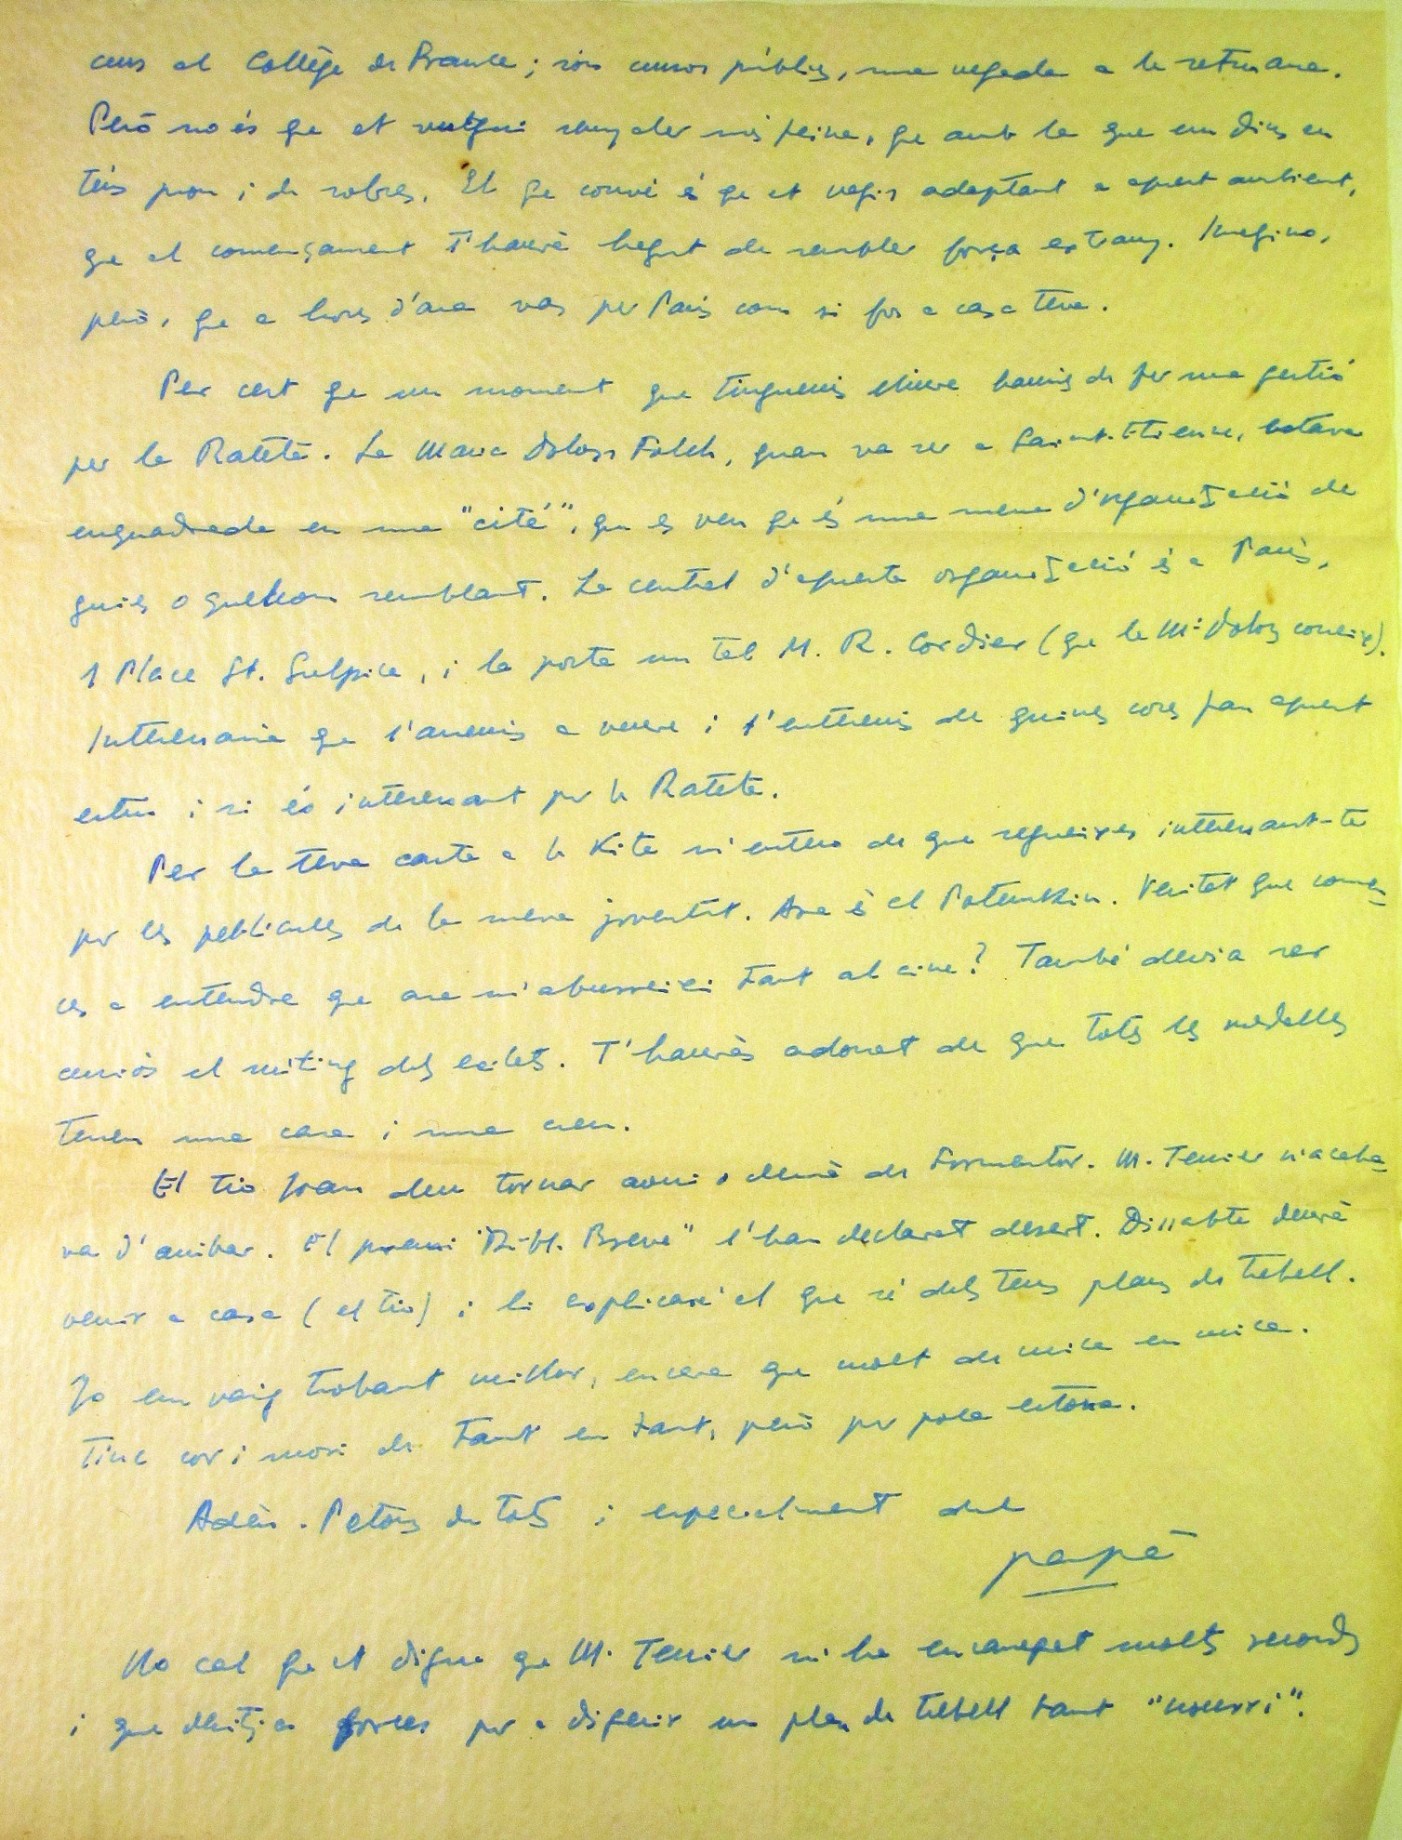 curs al Collège de France; són cursos públics, una vegada a la setmana.
Però no és que et vulgui donar més feina, que amb la que em dius en
tens prou i de sobres. El que convé és que et vagis adaptant a aquest ambient,
que al començament t'haurà hagut de semblar força estrany. Imagino,
però, que a hores d'ara vas per París com si fos a casa teva.
Per cert que un moment que tinguessis lliure hauries de fer una gestió
per la Rateta. La Maria Dolors Folch, quan va ser a Saint-Etienne, estava
enquadrada en una "cité", que es veu que és una mena d'organització de
guies o quelcom semblant. La central d'aquesta organització és a París,
1 Place St. Sulpice, i la porta un tal M. R. Cordier (que la Mª Dolors coneix).
Interessaria que l'anessis a veure i t'enteressis de quines coses fan aquest
estiu i si és interessant per la Rateta.
Per la teva carta a la Kita m'entero de que segueixes interessant-te
per les pel·lícules de la meva joventut. Ara és el Potemkin. Veritat que comen-
ces a entendre que ara m'abureixi tant al cine? També devia ser
curiós el míting dels exilats. T'hauràs adonat de que totes les medalles
tenen una cara i una creu.
El tio Joan deu tornar avui o demà de Formentor. M. Tenier n'acaba-
va d'arribar. El premi "Bibl. Breve" l'han declarat desert. Dissabte deurà
venir a casa (el tio) i li explicaré el que sé dels teus plans de treball.
Jo em vaig trobant millor, encara que molt de mica en mica.
Tinc cor i mori de tant en tant, però per poca estona.
Adéu. Petons de tots i especialment del
papà
No cal que et digui que M. Tenier m'ha encarregat molts records
i que desitja forces per a digerir un pla de treball tant "nourri".